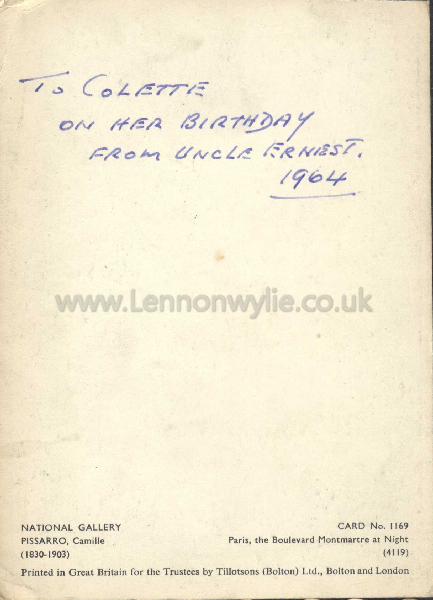 To COLETTE
ON HER BIRTHDAY
FROM UNCLE ERNEST.
1964
www.Lennonwylie.co.uk
NATIONAL GALLERY
PISSARRO, Camille
(1830-1903)
CARD No. 1169
Paris, the Boulevard Montmartre at Night
(4119)
Printed in Great Britain for the Trustees by Tillotsons (Bolton) Ltd., Bolton and London